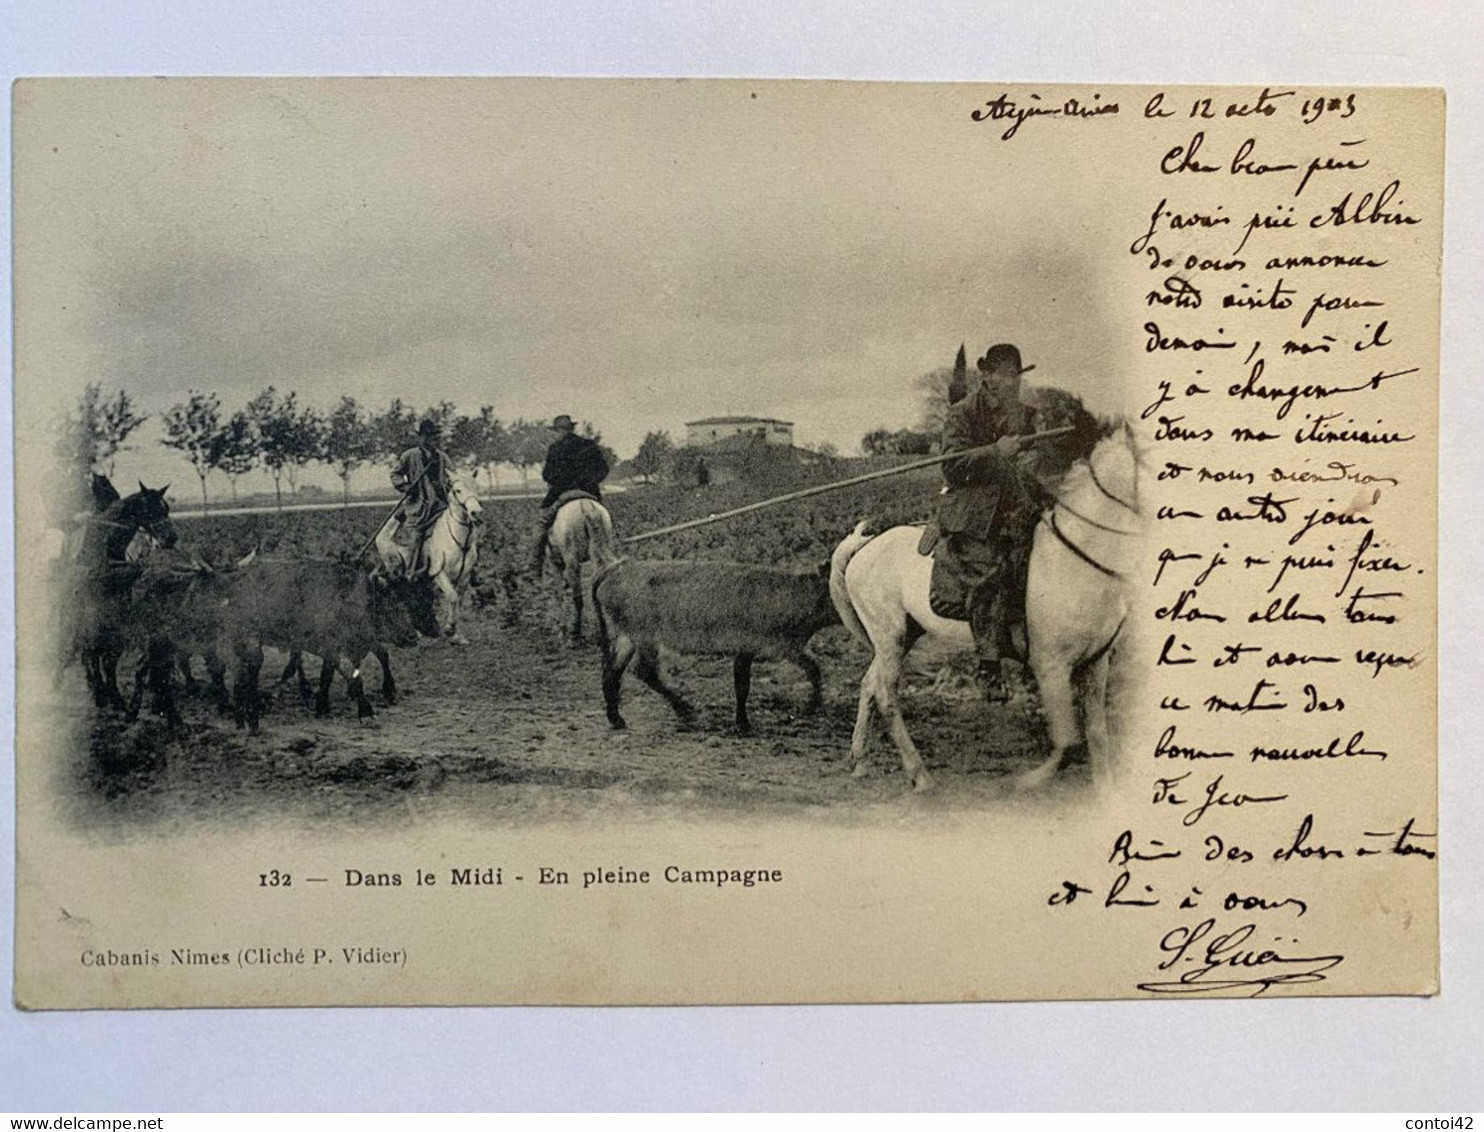 le 12 octo 1903
Cher beau père
J'avais prié Albin
de vous annoncer
notre visite pour
demain, mais il
y a changement
dans mon itinéraire
et nous viendrons
un autre jour
que je ne puis fixer.
Nous allons tous
bien et avons reçu
ce matin des
bonnes nouvelles
de Jean
Bien des choses à tous
et bien à vous
132 — Dans le Midi - En pleine Campagne
Cabanis Nimes (Cliché P. Vidier)
contoi42